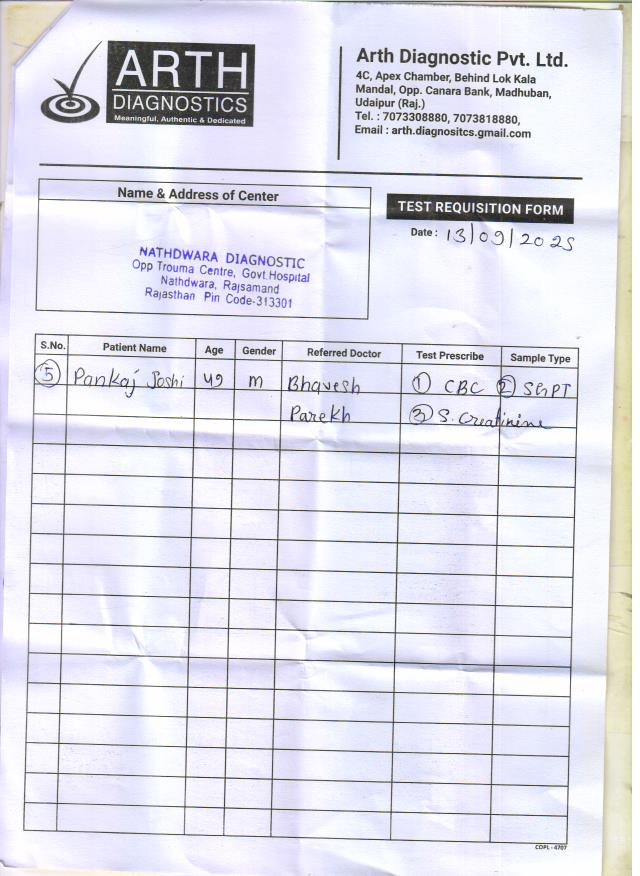 ARTH
DIAGNOSTICS
Meaningful, Authentic & Dedicated
Arth Diagnostic Pvt. Ltd.
4C, Apex Chamber, Behind Lok Kala
Mandal, Opp. Canara Bank, Madhuban,
Udaipur (Raj.)
Tel. : 7073308880, 7073818880,
Email : arth.diagnositcs.gmail.com
Name & Address of Center
NATHDWARA DIAGNOSTIC
Opp Trouma Centre, Govt.Hospital
Nathdwara, Rajsamand
Rajasthan Pin Code-313301
TEST REQUISITION FORM
Date : 13/09/2025
S.No. Patient Name Age Gender Referred Doctor Test Prescribe Sample Type
5 Pankaj Joshi 49 M Bhavesh 1 CBC 2 SGPT
Parekh 3 S. Creatinine
CDPL - 4707